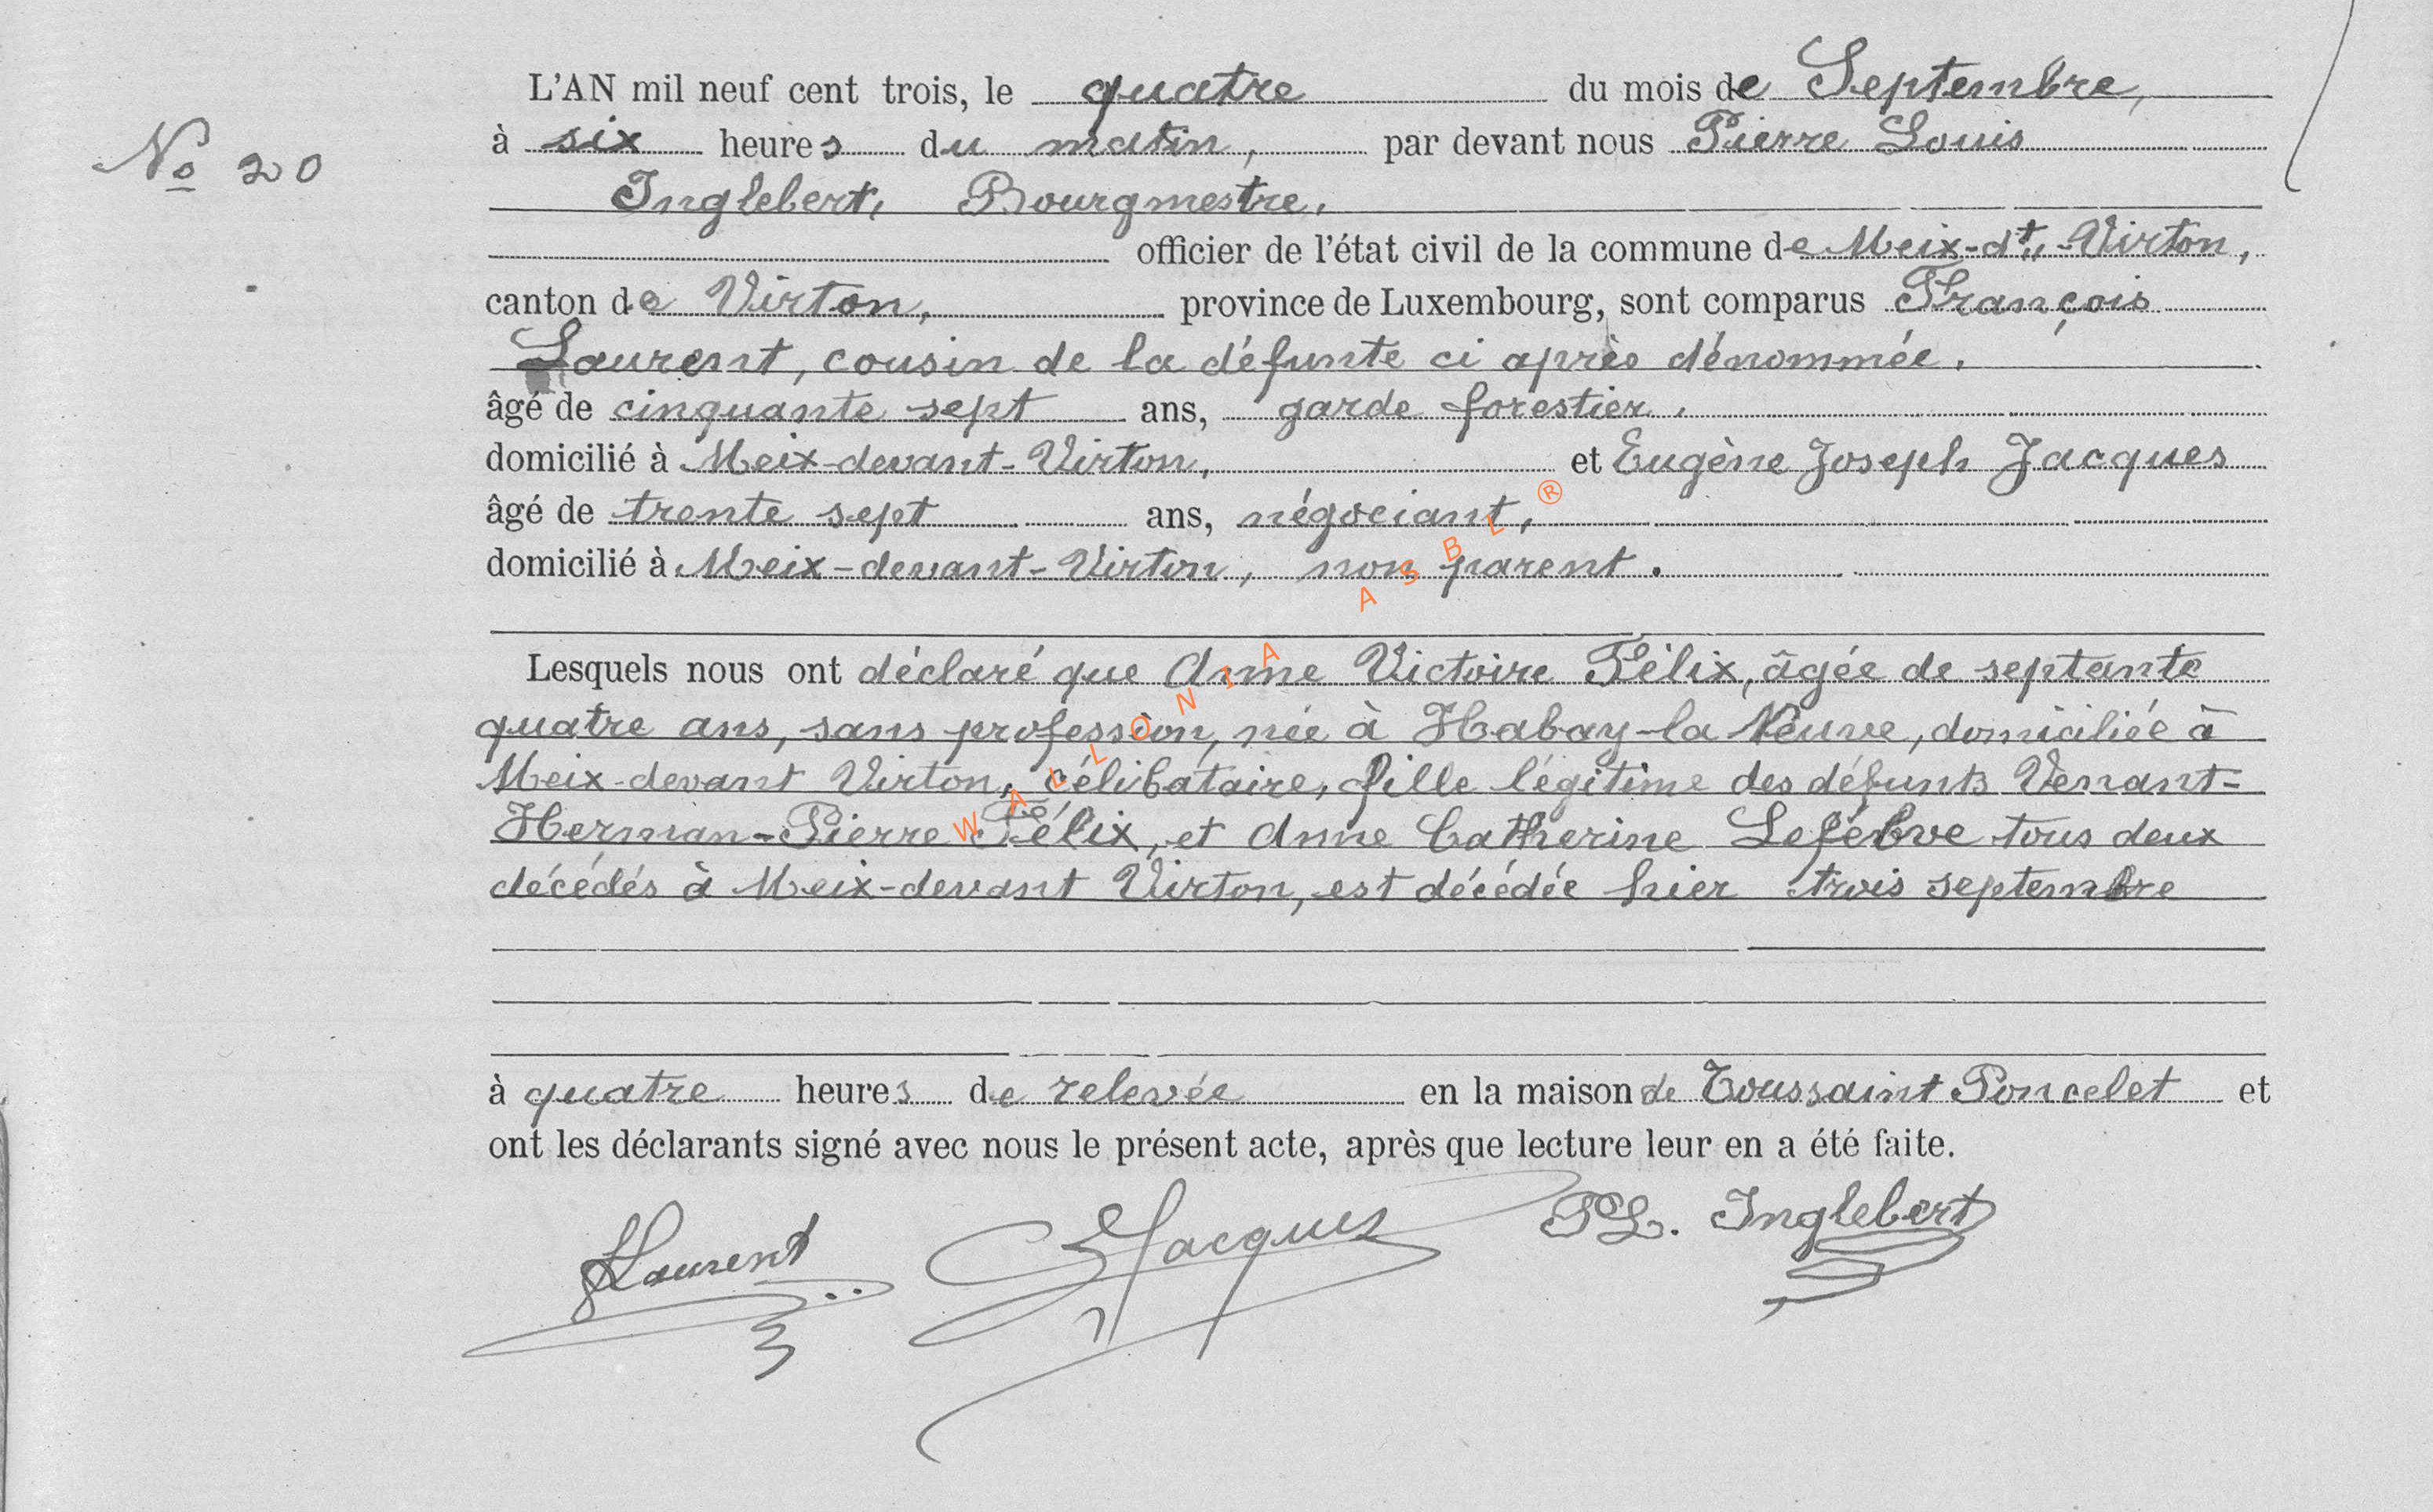 L'AN mil neuf cent trois, le quatre du mois de Septembre,
No 20
à six heures du matin, par devant nous Pierre Louis
Inglebert, Bourgmestre,
officier de l'état civil de la commune de Meix-dt-Virton,
canton de Virton, province de Luxembourg, sont comparus François
Laurent, cousin de la défunte ci après dénommée,
âgé de cinquante sept ans, garde forestier,
domicilié à Meix-devant-Virton, et Eugène Joseph Jacques
âgé de trente sept ans, négociant,
domicilié à Meix-devant-Virton, non parent.
Lesquels nous ont déclaré que Anne Victoire Félix, âgée de septante
quatre ans, sans profession, née à Habay-la Neuve, domiciliée à
Meix-devant Virton, célibataire, fille légitime des défunts Venant-
Herman-Pierre Félix, et Anne Catherine Lefébve tous deux
décédés à Meix-devant Virton, est décédée hier trois septembre
à quatre heures de relevée en la maison de Toussaint Poncelet et
ont les déclarants signé avec nous le présent acte, après que lecture leur en a été faite.
FLaurent EJacques PL. Inglebert
WALLONIA ASBL ®